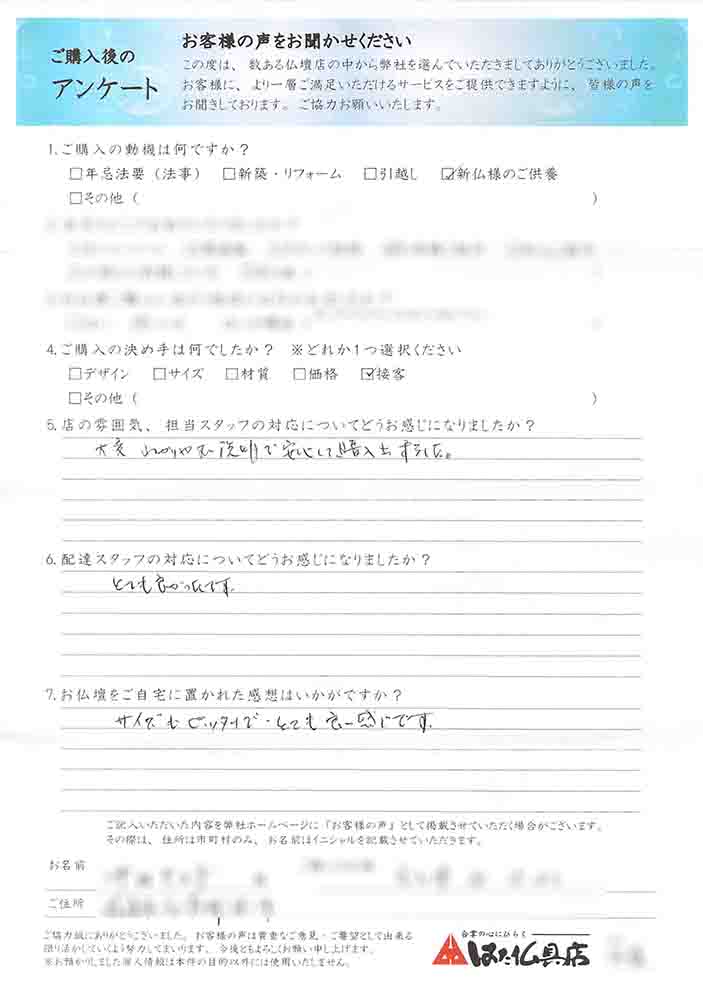 ご購入後の
アンケート
お客様の声をお聞かせください
この度は、数ある仏壇店の中から弊社を選んでいただきましてありがとうございました。
お客様に、より一層ご満足いただけるサービスをご提供できますように、皆様の声を
お聞きしております。ご協力お願いいたします。
1.ご購入の動機は何ですか?
□年忌法要(法事) □新築・リフォーム □引越し ☑新仏様のご供養
□その他( )
4.ご購入の決め手は何でしたか? ※どれか1つ選択ください
□デザイン □サイズ □材質 □価格 ☑接客
□その他( )
5.店の雰囲気、担当スタッフの対応についてどうお感じになりましたか?
大変 わかりやすい説明で安心して購入出来ました。
6.配達スタッフの対応についてどうお感じになりましたか?
とても良かったです。
7.お仏壇をご自宅に置かれた感想はいかがですか?
サイズもピッタリで・とても良い感じです。
ご記入いただいた内容を弊社ホームページに『お客様の声』として掲載させていただく場合がございます。
その際は、住所は市町村のみ、お名前はイニシャルを記載させていただきます。
お名前
ご住所
ご協力誠にありがとうございました。お客様の声は貴重なご意見・ご要望として出来る
限り活かしていくよう努力してまいります。今後ともよろしくお願い申し上げます。
※お預かりしました個人情報は本件の目的以外には使用いたしません。
合掌の心にひらく
はた仏具店